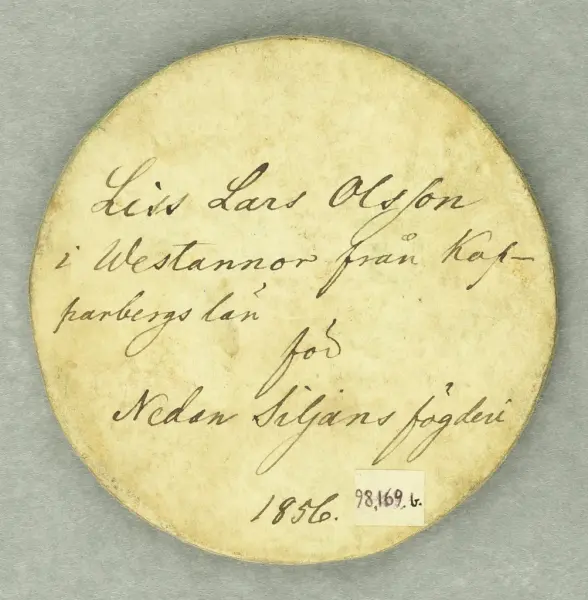 Liss Lars Olsson
i Westannor från Kop-
parbergs län
för
Nedan Siljans fögderi
1856.
98,169.b.